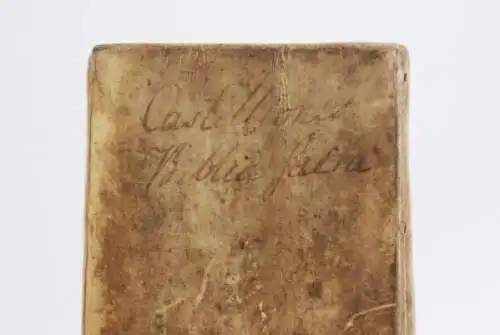 Castellionis
Biblia Sacra